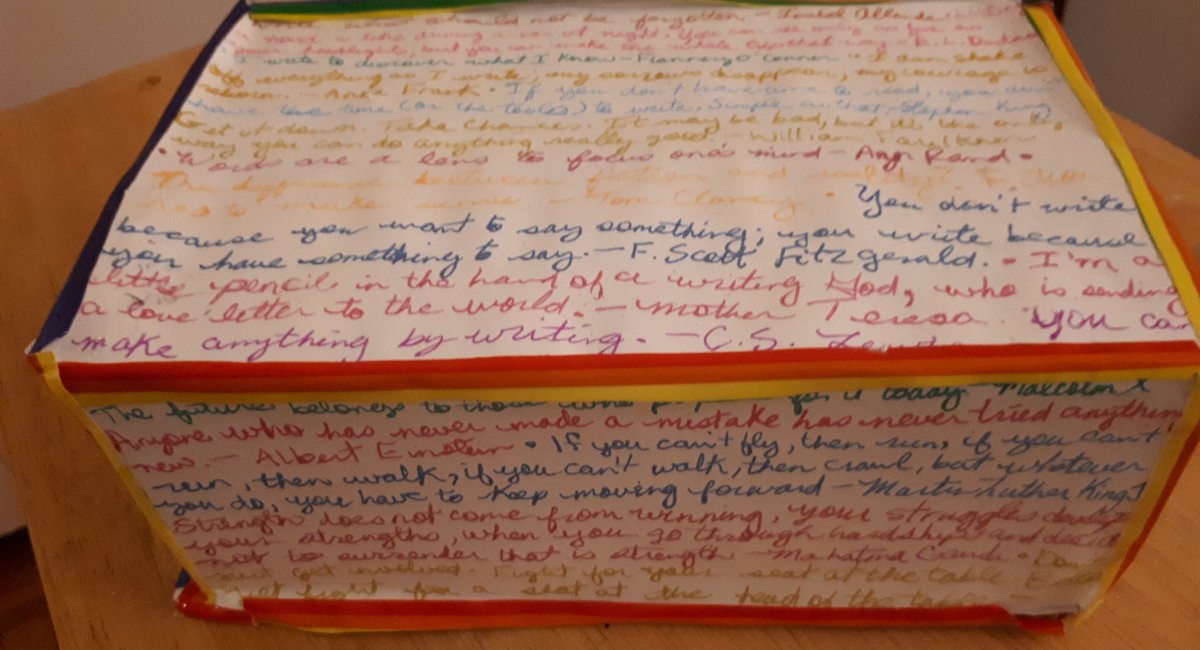 should not be forgotten - Isabel Allende
night. You can see only as far as
your headlights, but you can make the whole trip that way - E.L.
I write to discover what I know - Flannery O'Conner • I can shake
off everything as I write; my sorrows disappear, my courage is
reborn. - Anne Frank • If you don't have time to read, you don't
have the time (or the tools) to write. Simple as that. Stephen King
Get it down. Take chances. It may be bad, but it's the only
way you can do anything really good - William Faulkner
• Words are a lens to focus one's mind - Ayn Rand •
The difference between fiction and reality? Fiction
has to make sense - Tom Clancy • You don't write
because you want to say something; you write because
you have something to say. - F. Scott Fitzgerald. • I'm a
little pencil in the hand of a writing God, who is sending
a love letter to the world. - Mother Teresa. You can
make anything by writing. - C.S. Lewis
The future belongs to those who for it today - Malcolm X
Anyone who has never made a mistake has never tried anything
new. - Albert Einstein • If you can't fly, then run, if you can't
run, then walk, if you can't walk, then crawl, but whatever
you do, you have to keep moving forward - Martin Luther King J
Strength does not come from winning, your struggles develop
your strengths, when you go through hardships and decide
not to surrender that is strength - Mahatma Gandi • Don
just get involved. Fight for your seat at the table
yet fight for a seat at the head of the table